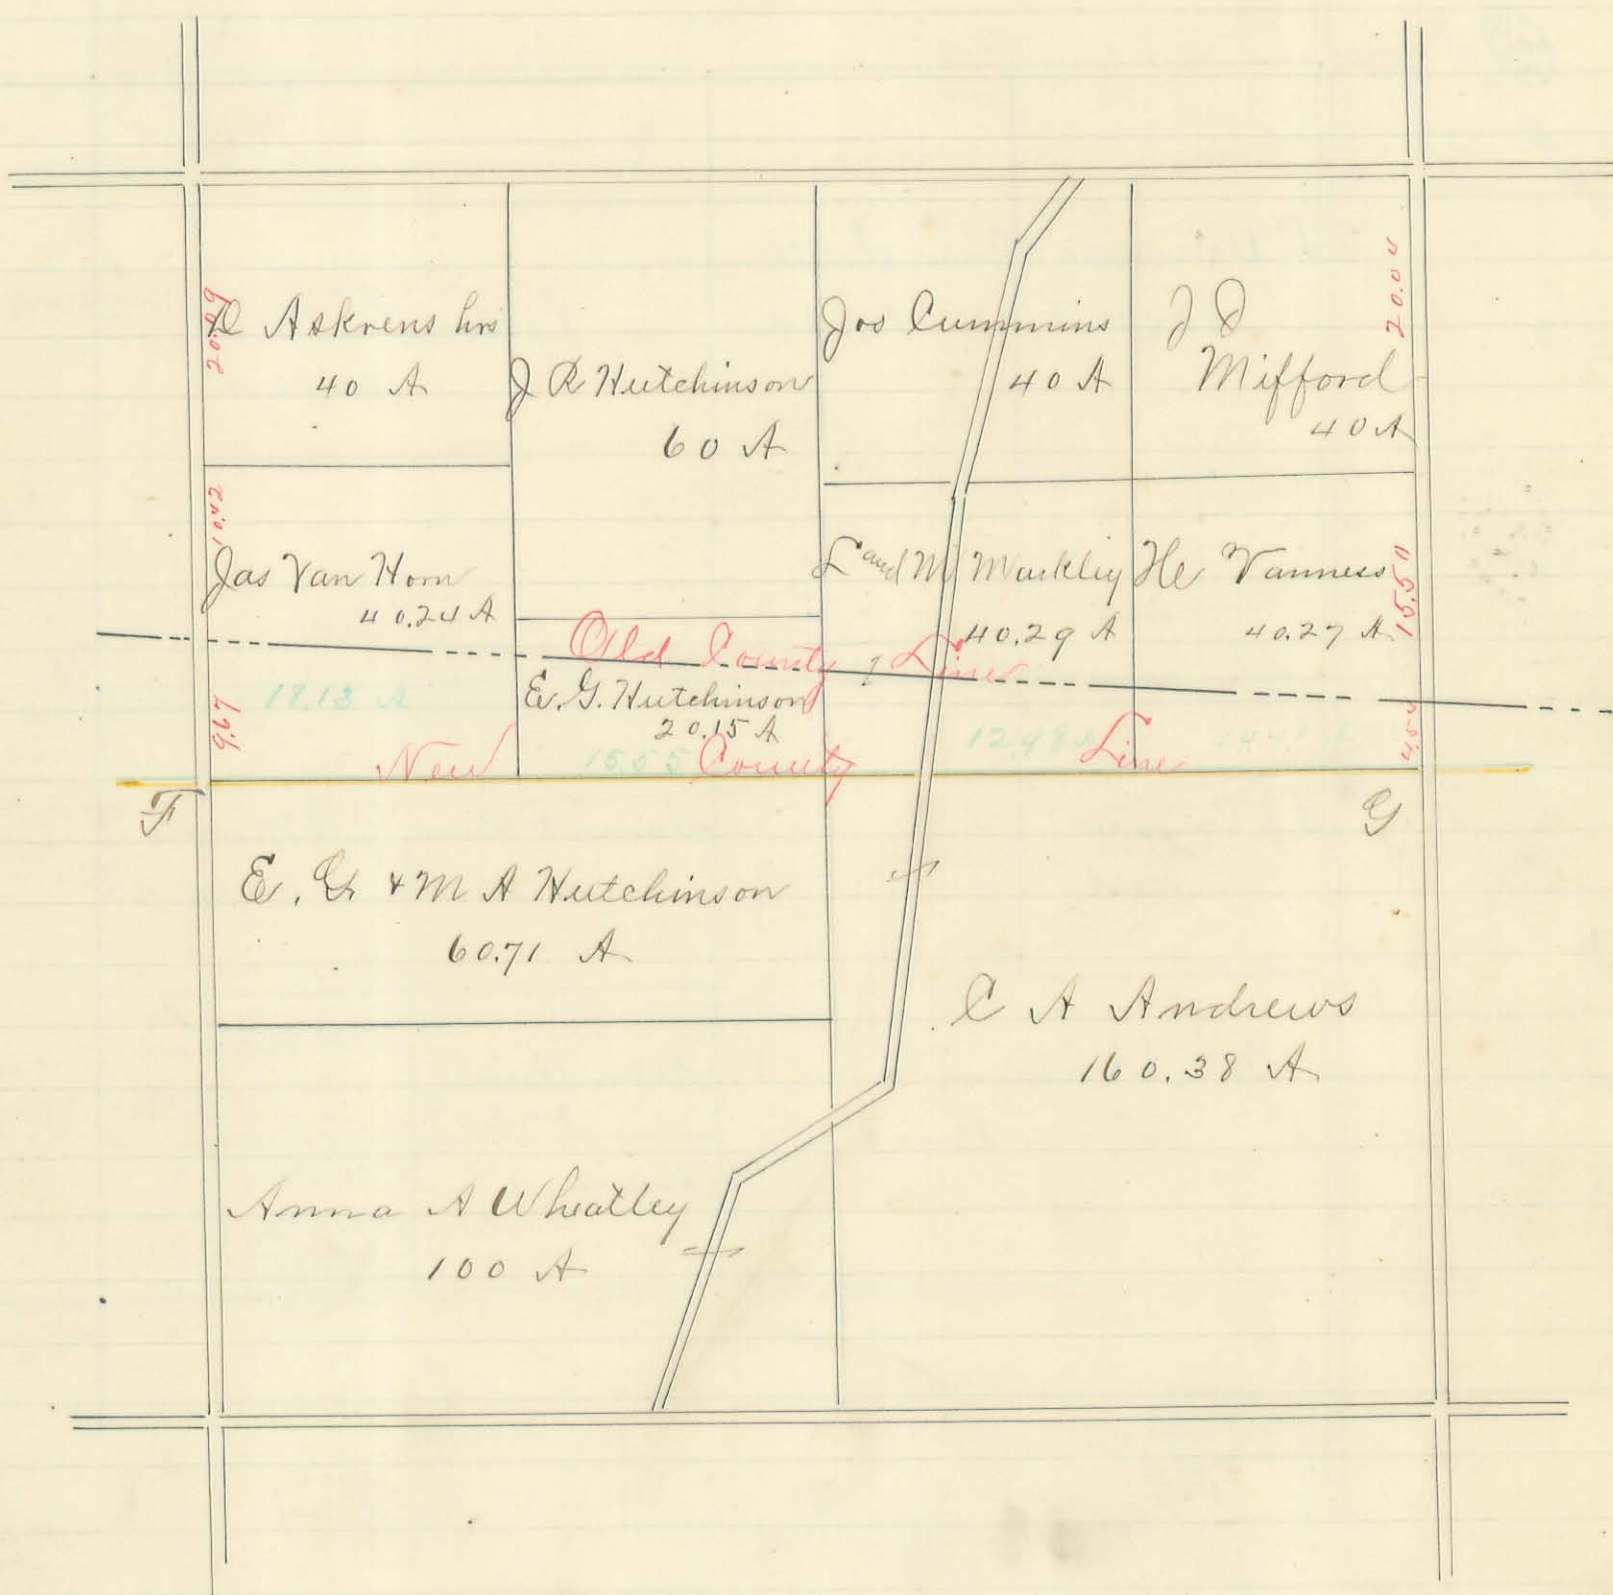 D Askrens hrs
40 A
20.09
J R Hutchinson
60 A
Jos Cummins
40 A
J D
Mifford
40 A
20.04
10.42
Jas Van Horn
40.24 A
L and M Markley
40.29 A
He Vanness
40.27 A
15.50
Old County Line
18.13 A
9.67
E. G. Hutchinson
20.15 A
15.55
12.98
4.54
New County Line
F
G
E. G. & M A Hutchinson
60.71 A
C A Andrews
160.38 A
Anna A Wheatley
100 A